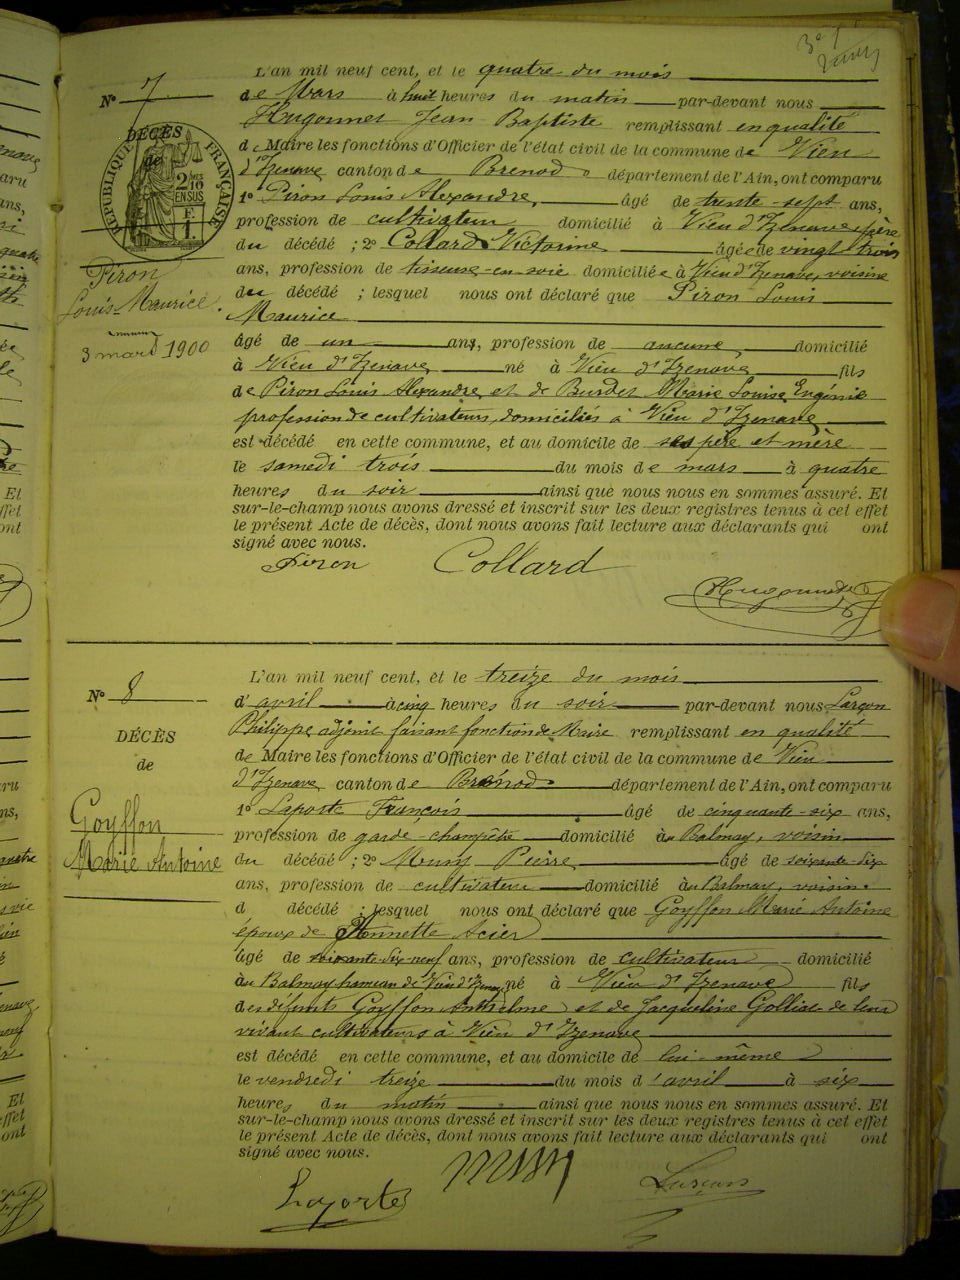 N° 7
DÉCÈS
de
RÉPUBLIQUE FRANÇAISE
2/10
EN SUS
F.
1.
Piron
Louis-Maurice.
3 mars 1900
L'an mil neuf cent, et le quatre du mois
de Mars à huit heures du matin par-devant nous
Hugonnet Jean Baptiste remplissant en qualité
de Maire les fonctions d'Officier de l'état civil de la commune de Vieu
d'Izenave canton de Brenod département de l'Ain, ont comparu
1° Piron Louis Alexandre, âgé de trente-sept ans,
profession de cultivateur domicilié à Vieu d'Izenave, père
du décédé ; 2° Collard Victorine âgée de vingt trois
ans, profession de tisseuse-en-soie domiciliée à Vieu d'Izenave, voisine
du décédé ; lesquel nous ont déclaré que Piron Louis
Maurice
âgé de un ans, profession de aucune, domicilié
à Vieu d'Izenave né à Vieu d'Izenave fils
de Piron Louis Alexandre et de Burdet Marie Louise Eugénie
profession de cultivateurs, domiciliés à Vieu d'Izenave
est décédé en cette commune, et au domicile de ses père et mère
le samedi trois du mois de mars à quatre
heures du soir ainsi que nous nous en sommes assuré. Et
sur-le-champ nous avons dressé et inscrit sur les deux registres tenus à cet effet
le présent Acte de décès, dont nous avons fait lecture aux déclarants qui ont
signé avec nous.
Piron Collard
Hugonnet
N° 8
DÉCÈS
de
Goyffon
Marie Antoine
L'an mil neuf cent, et le treize du mois
d'avril à cinq heures du soir par-devant nous Larçon
Philippe adjoint faisant fonction de Maire remplissant en qualité
de Maire les fonctions d'Officier de l'état civil de la commune de Vieu
d'Izenave canton de Brénod département de l'Ain, ont comparu
1° Laporte François âgé de cinquante-six ans,
profession de garde-champêtre domicilié au Balmay, voisin
du décédé ; 2° Muny Pierre âgé de soixante-six
ans, profession de cultivateur domicilié au Balmay, voisin.
d décédé ; lesquel nous ont déclaré que Goyffon Marie Antoine
époux de Annette Acier
âgé de soixante-dix-neuf ans, profession de cultivateur domicilié
au Balmay hameau de Vieu d'Izenave né à Vieu d'Izenave fils
des défunts Goyffon Anthelme et de Jacqueline Golliat de leur
vivant cultivateurs à Vieu d'Izenave
est décédé en cette commune, et au domicile de lui-même
le vendredi treize du mois d'avril à six
heures du matin ainsi que nous nous en sommes assuré. Et
sur-le-champ nous avons dressé et inscrit sur les deux registres tenus à cet effet
le présent Acte de décès, dont nous avons fait lecture aux déclarants qui ont
signé avec nous.
Laporte